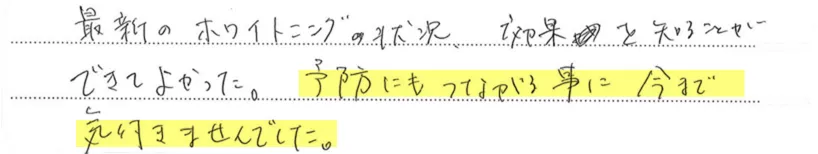 最新のホワイトニングの状況、効果を知ることが
できてよかった。予防にもつながる事に今まで
気付きませんでした。